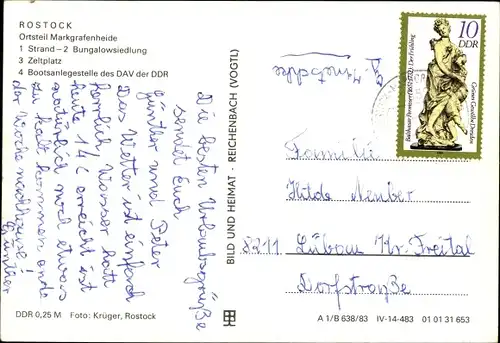 ROSTOCK
Ortsteil Markgrafenheide
1 Strand – 2 Bungalowsiedlung
3 Zeltplatz
4 Bootsanlegestelle des DAV der DDR
Die besten Urlaubsgrüße
sendet Euch
Günther und Peter
Das Wetter ist einfach
herrlich, Wasser hatt
heute 14° erreicht ist
natürlich noch etwas
zu kalt, kommen ende
der Woche nachhause!
Günther
DDR 0,25 M Foto: Krüger, Rostock
BILD UND HEIMAT · REICHENBACH (VOGTL)
10
DDR
Balthasar Permoser (1651-1732), Der Frühling
Grünes Gewölbe Dresden
Familie
Hilde
8211 Lübau Kr. Freital
Dorfstraße
A 1/B 638/83 IV-14-483 01 01 31 653